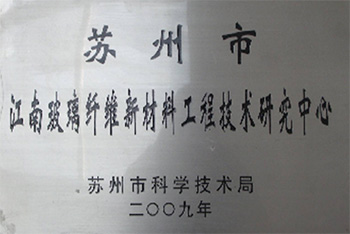 苏州市
江南玻璃纤维新材料工程技术研究中心
苏州市科学技术局
二〇〇九年